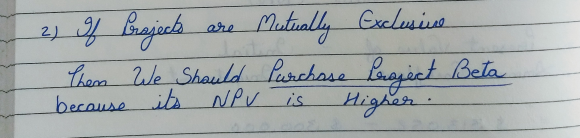 2) If Projects are Mutually Exclusive
Then We Should Purchase Project Beta
because its NPV is Higher.